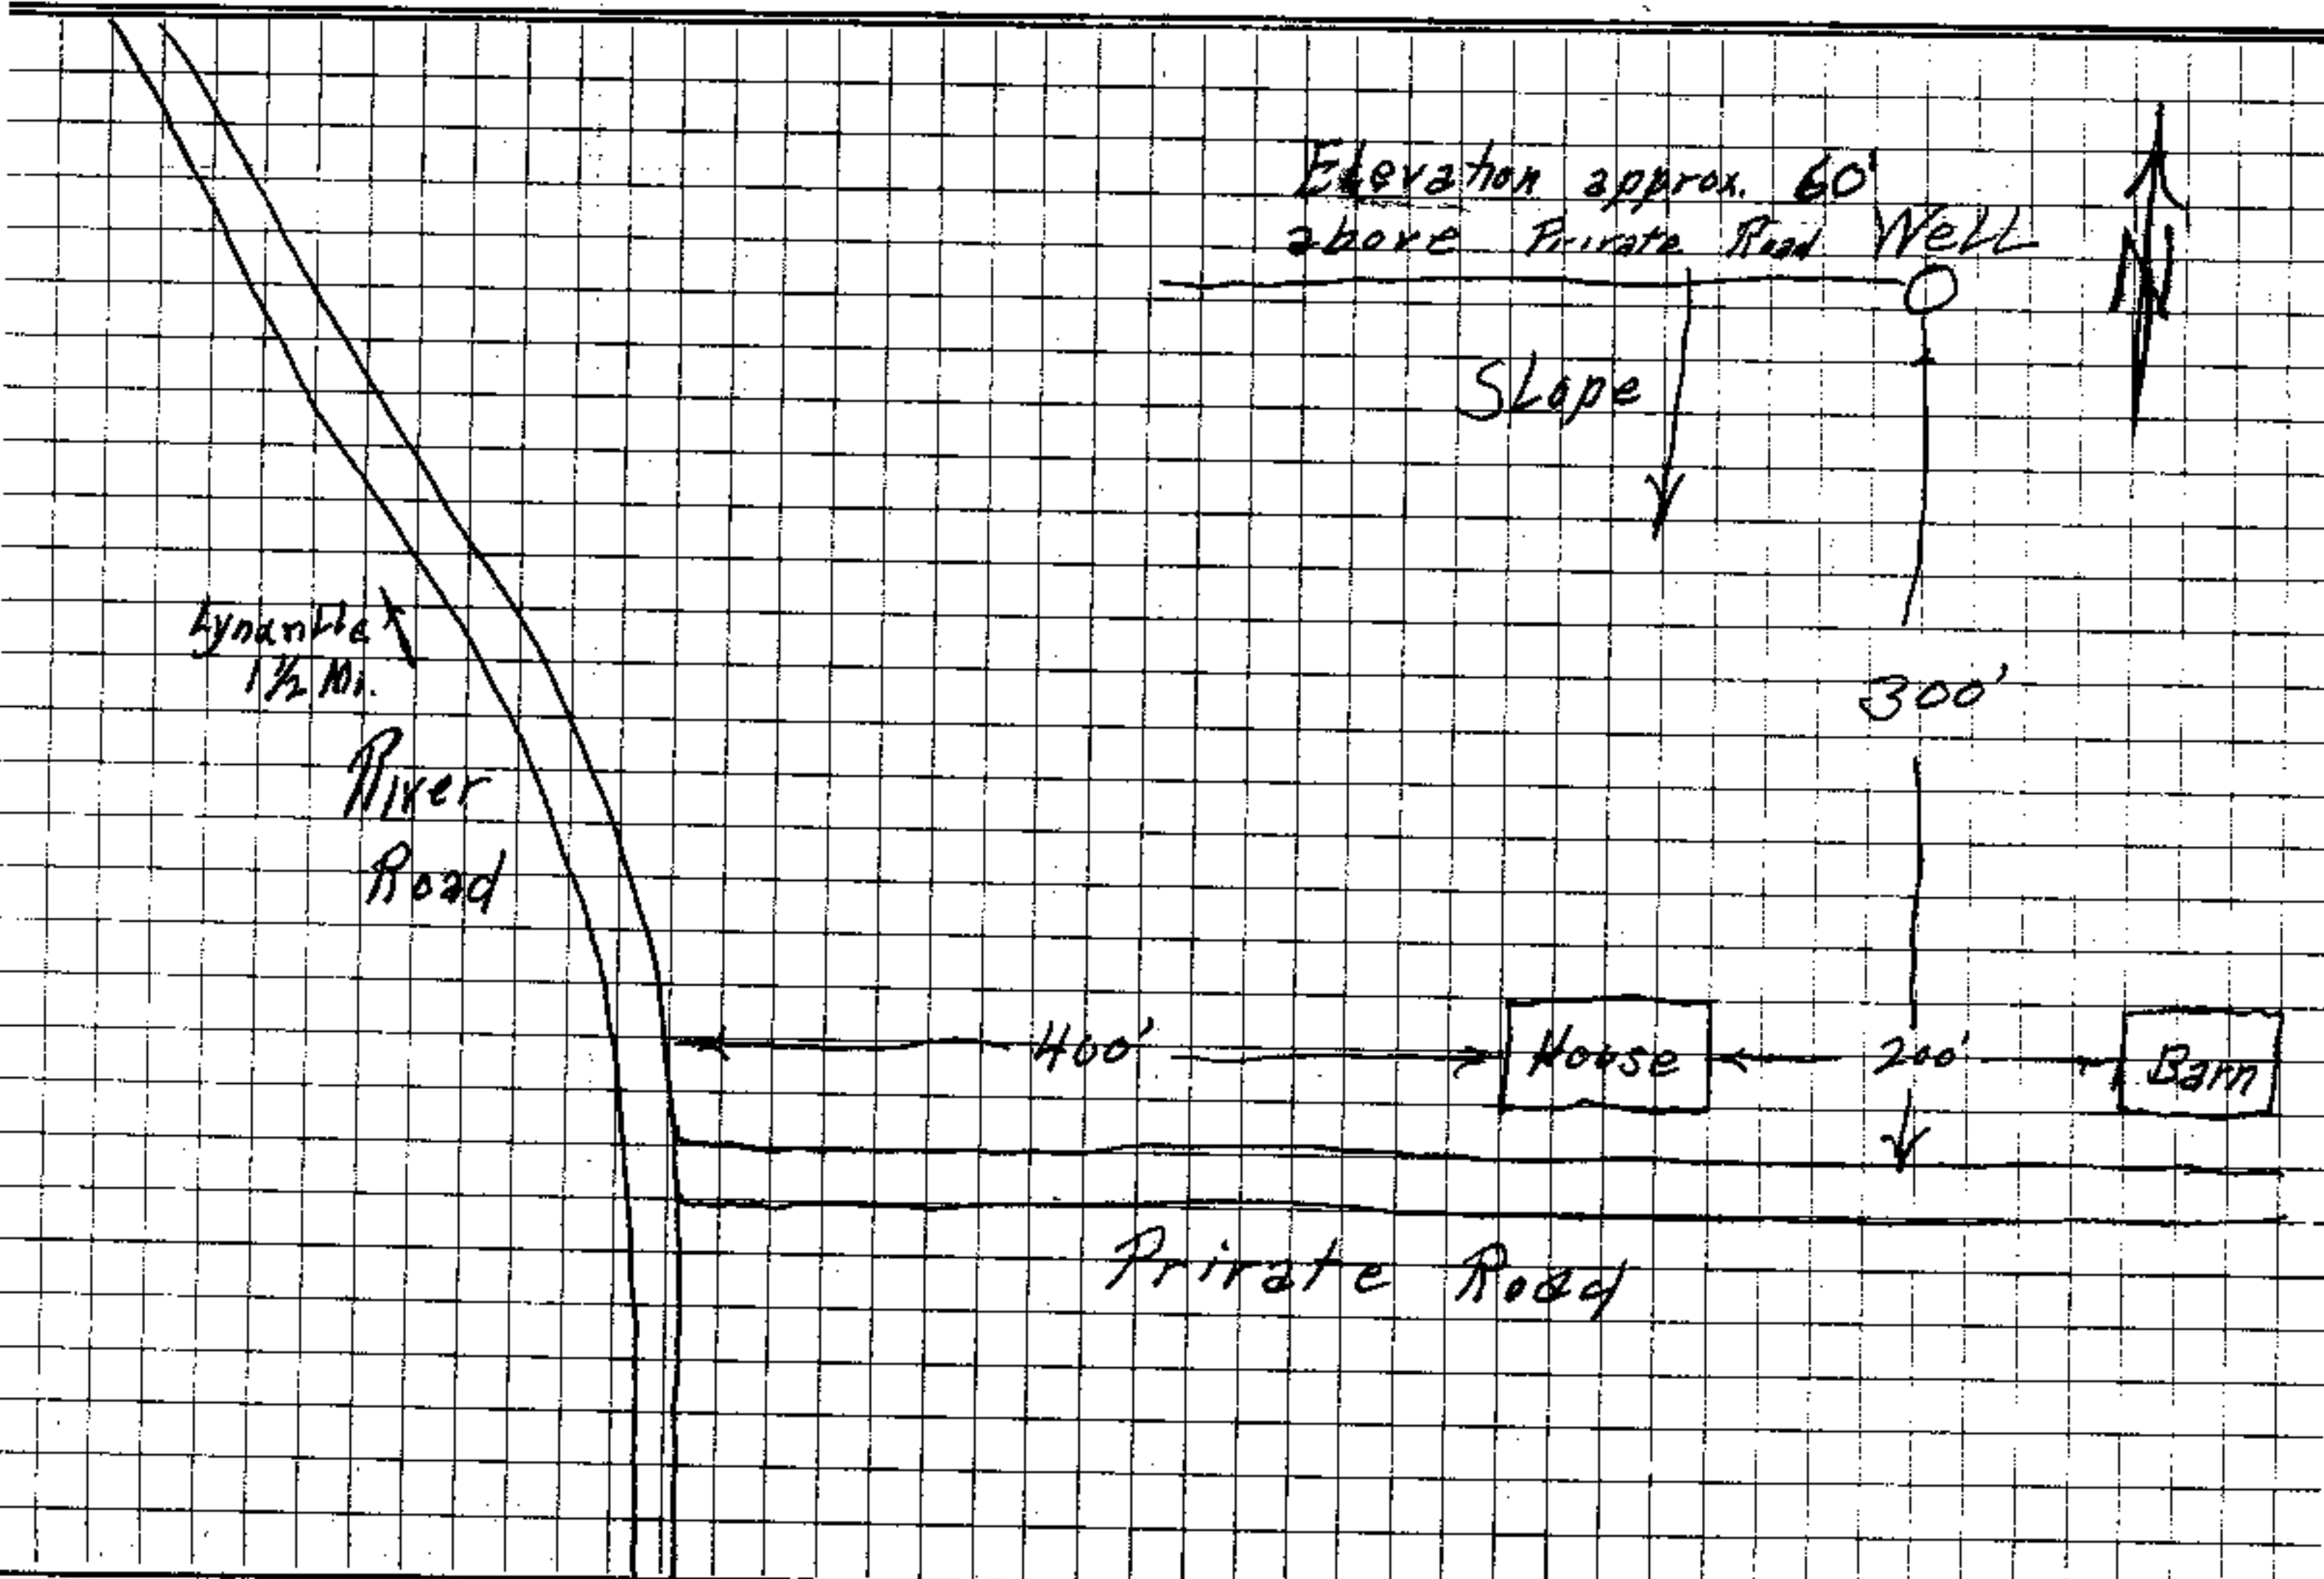 Elevation approx. 60'
above Private Road Well
N
Slope
1 1/2 Mi.
300'
River
Road
400'
House
200'
Barn
Private Road